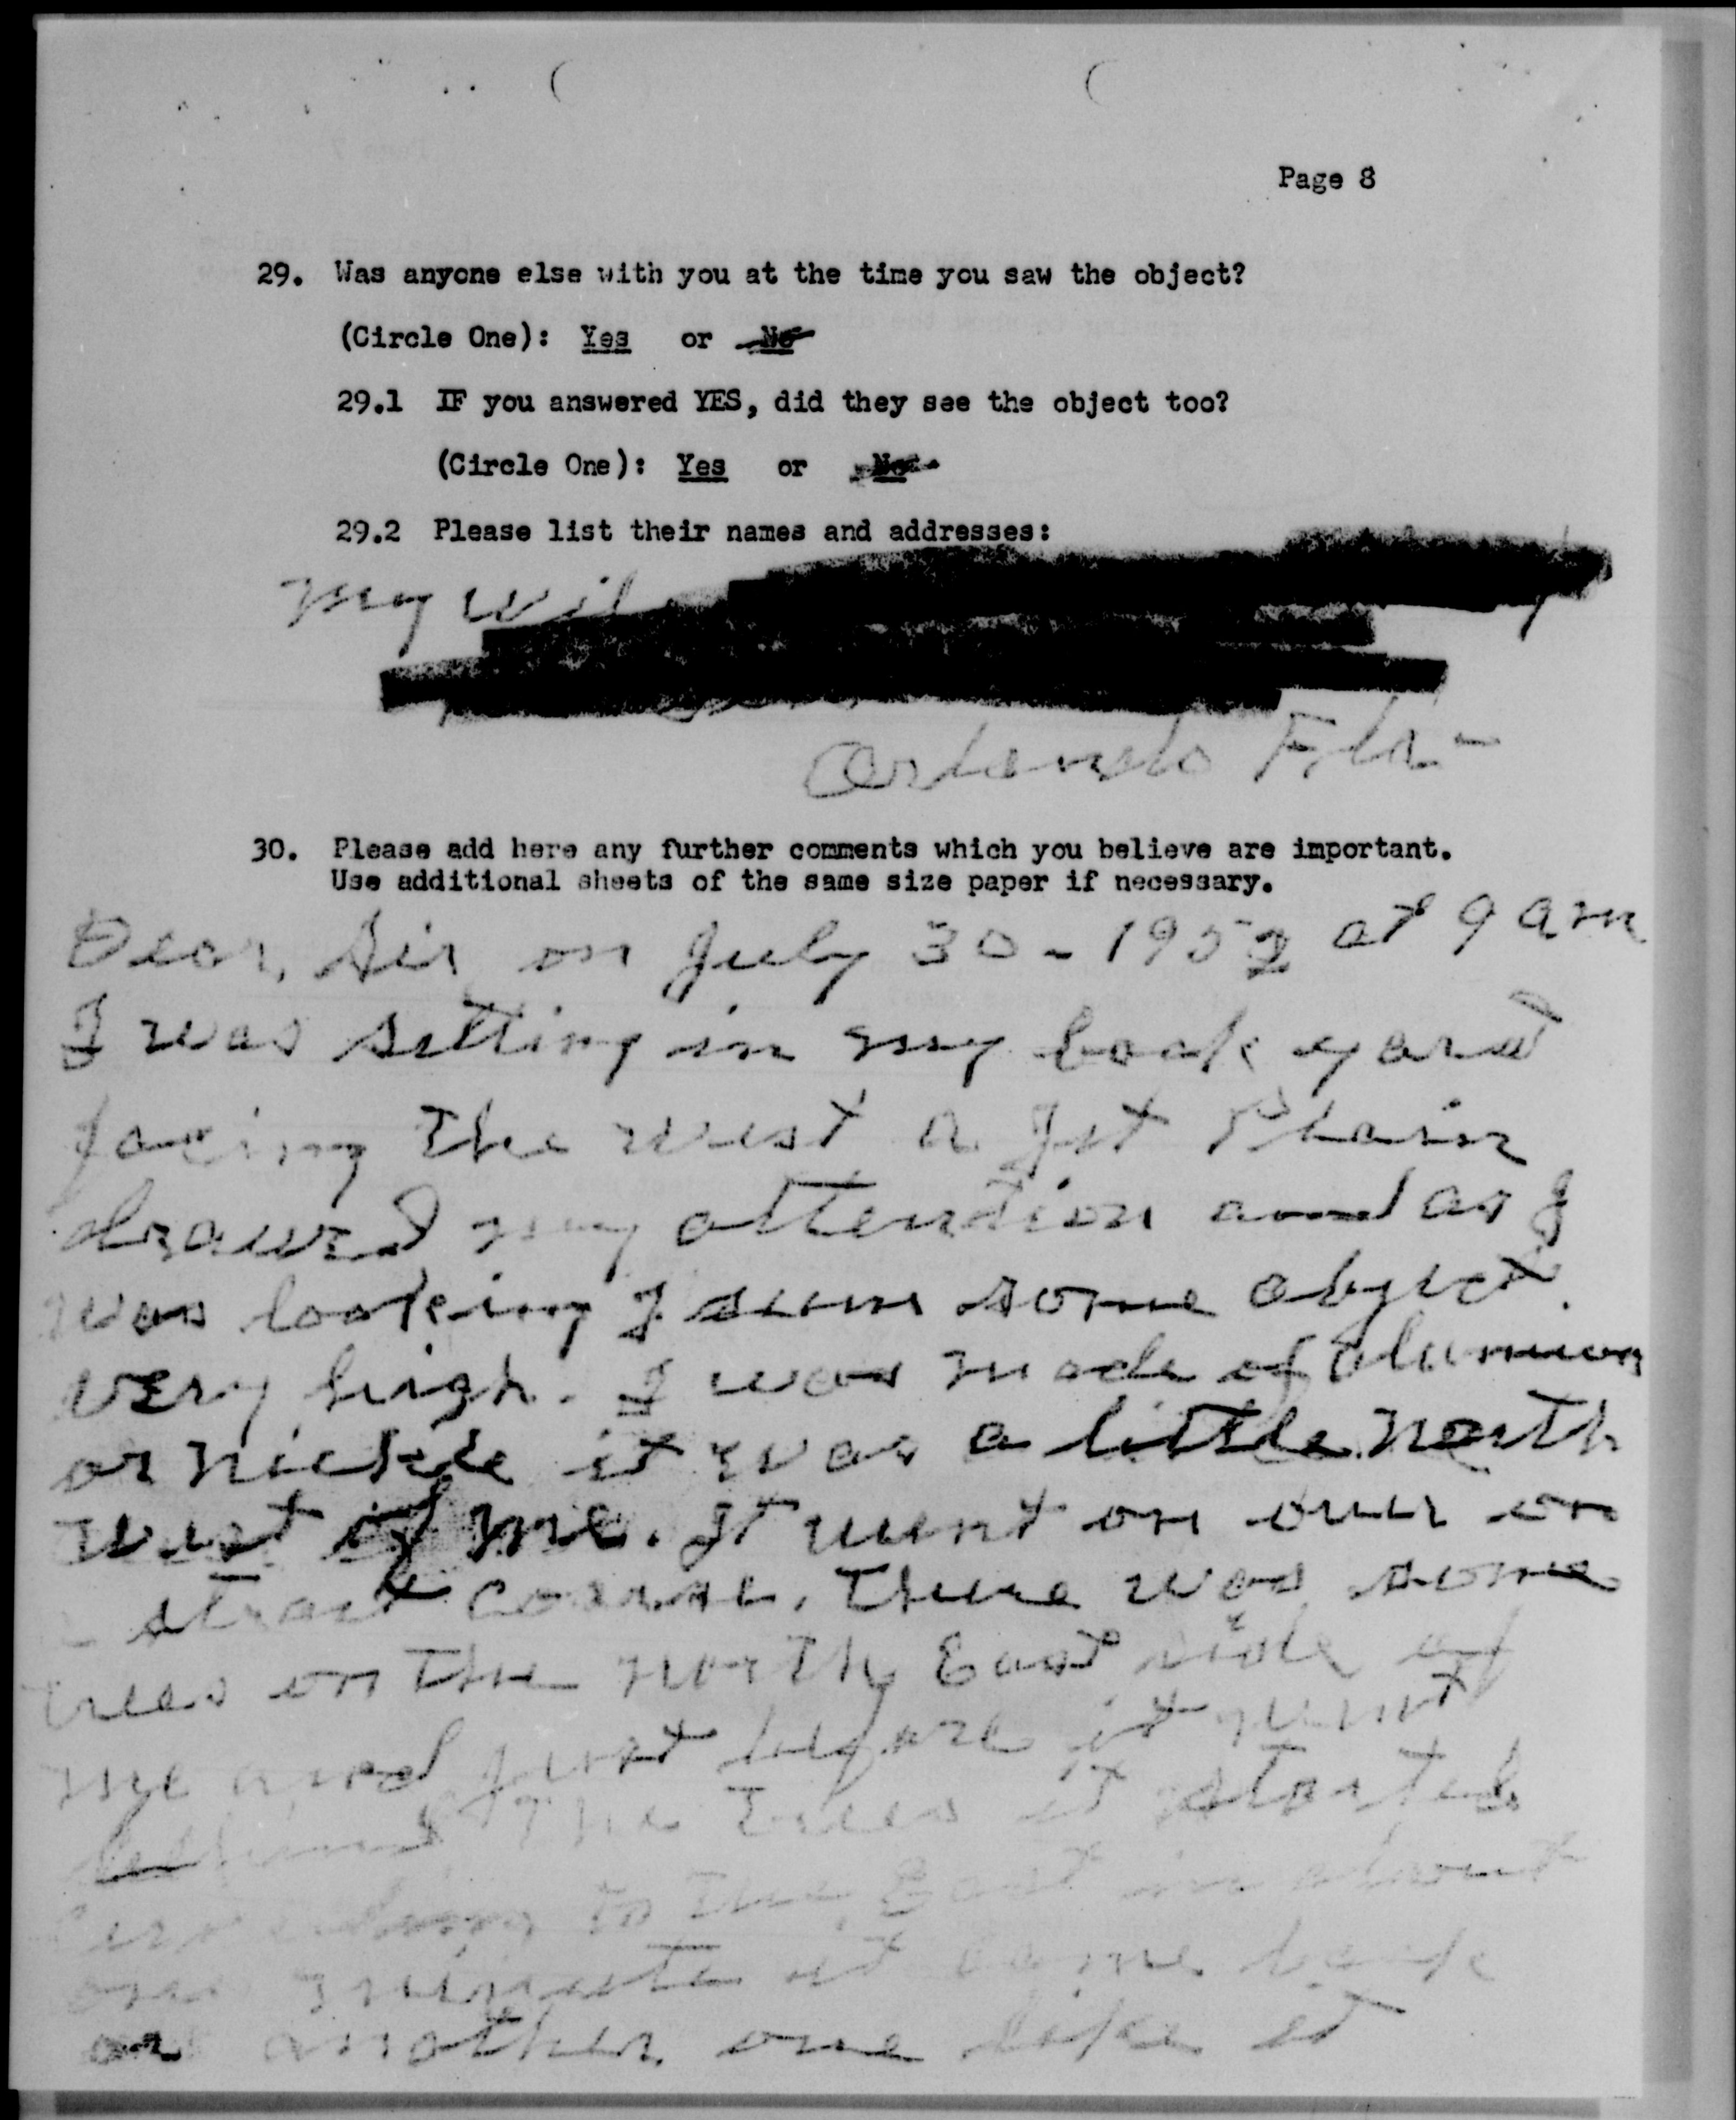 Page 8
29. Was anyone else with you at the time you saw the object?
(Circle One): Yes or No
29.1 IF you answered YES, did they see the object too?
(Circle One): Yes or No
29.2 Please list their names and addresses:
my
Orlando Fla-
30. Please add here any further comments which you believe are important.
Use additional sheets of the same size paper if necessary.
Dear, Sir, on July 30-1952 at 9 am
I was setting in my back yard
facing the west a jet Plain
drawed my attention and as I
was looking I seen some object
very high. I was made of
or it was a little north
west of me. It went on over on
strait there was some
trees on the north East side of
me and just before it went
behind the Trees it started
to the East in about
one minute it came back
or another one like it